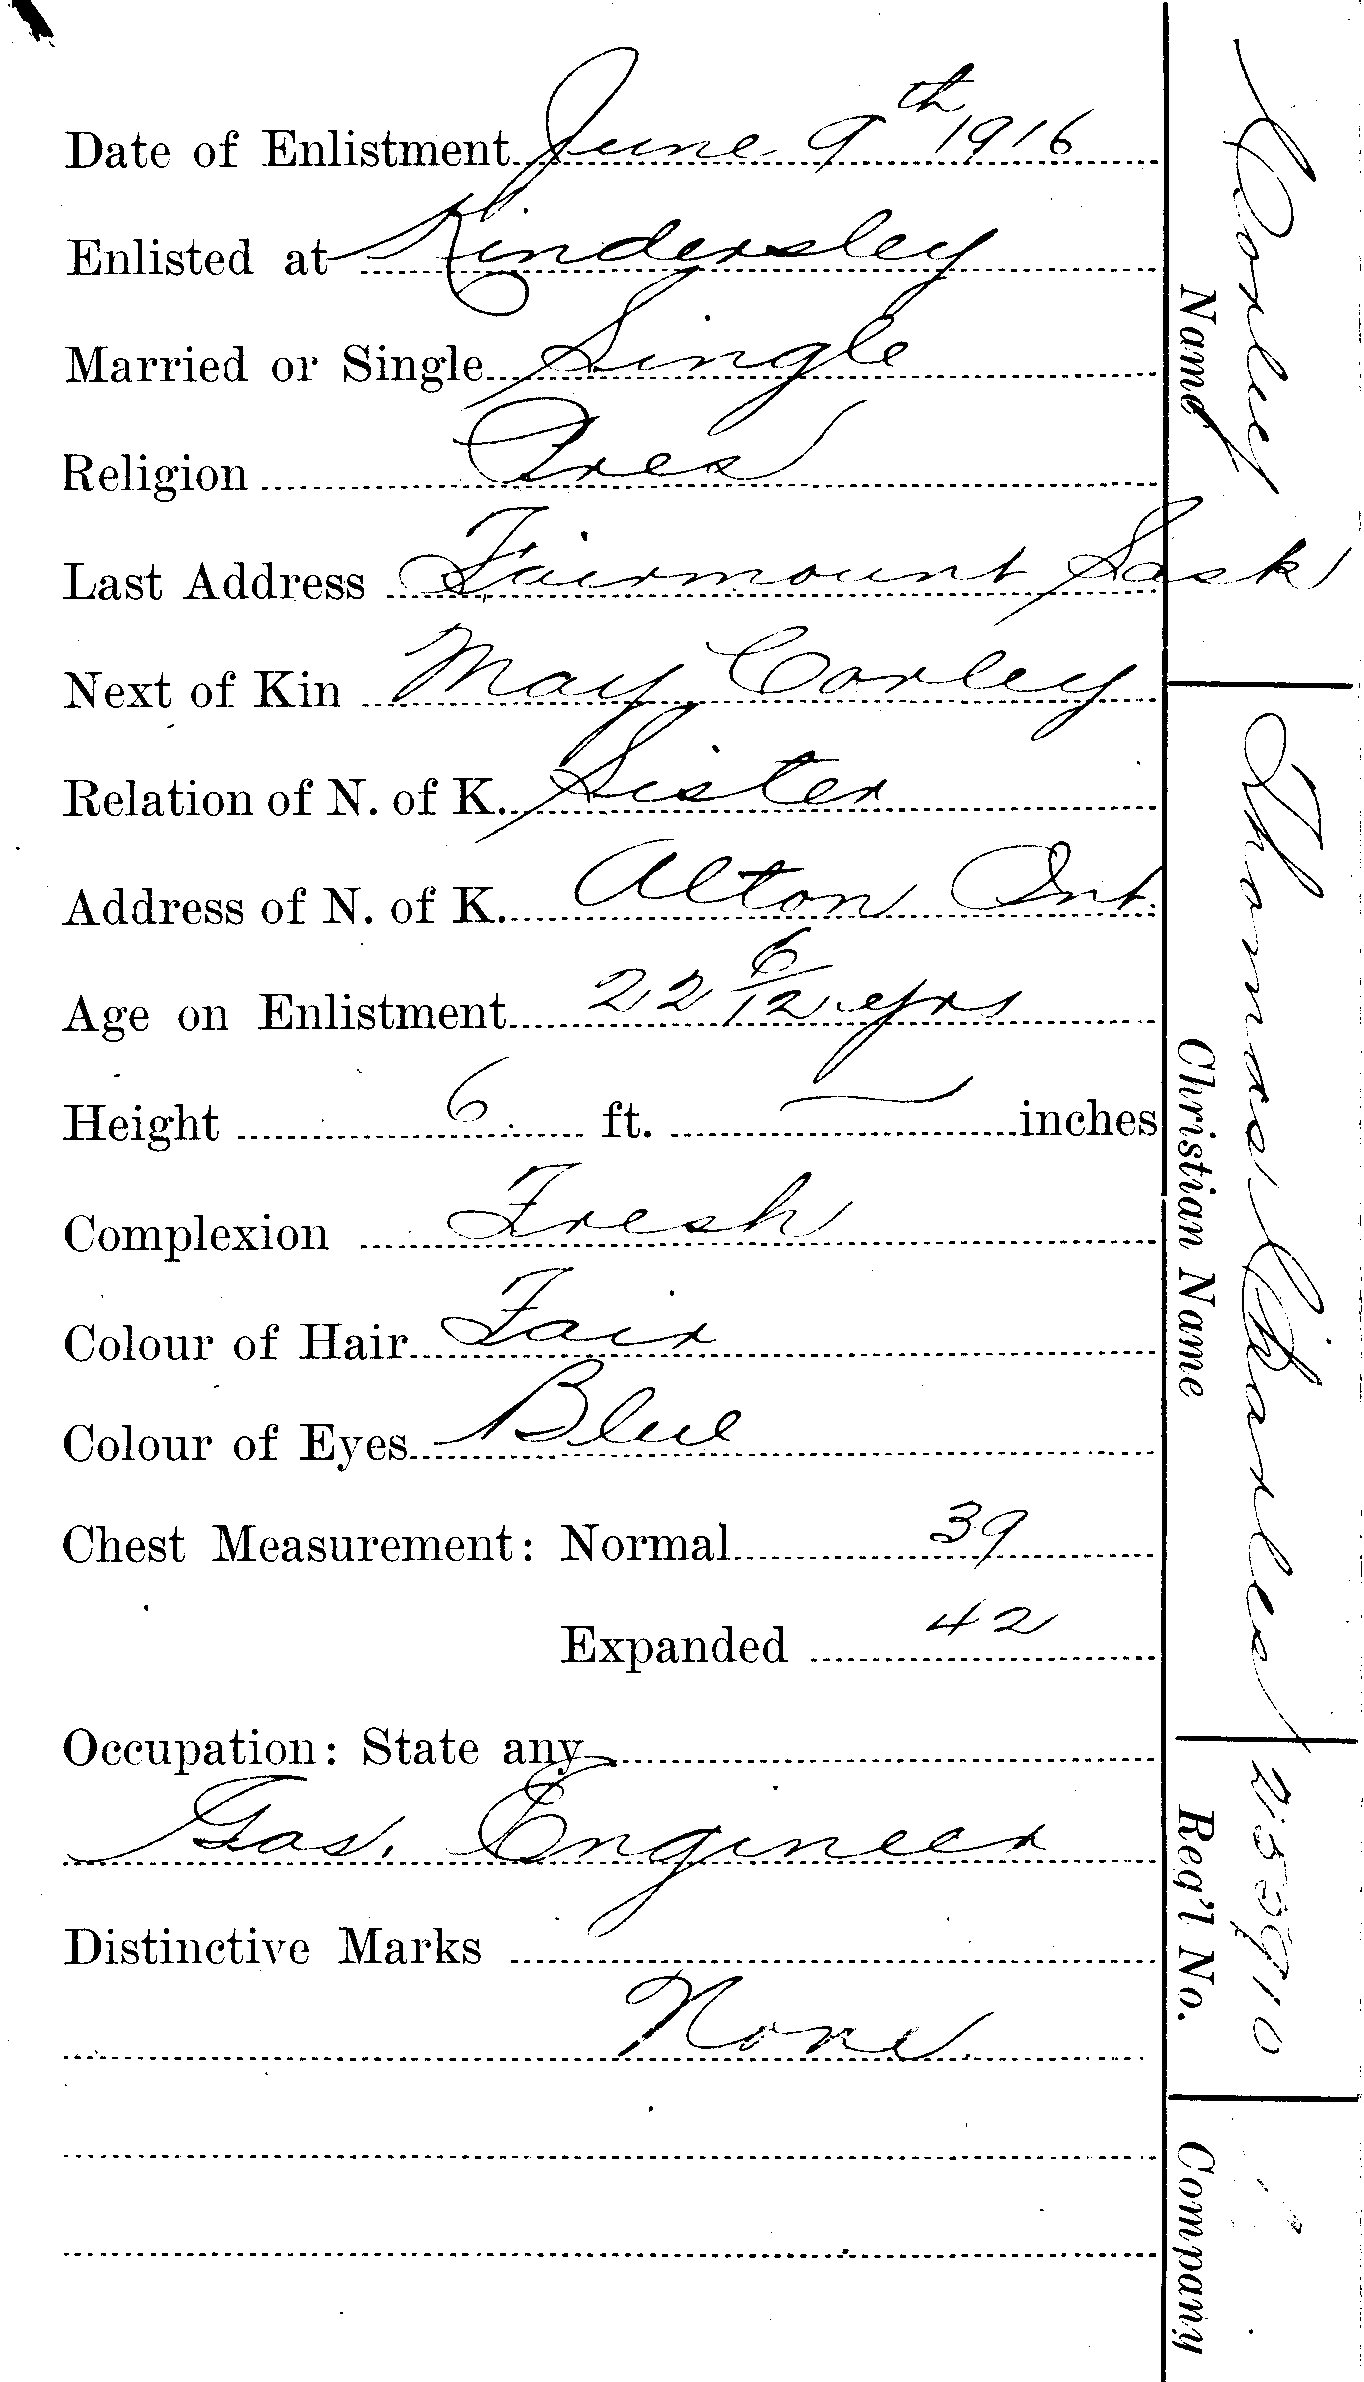 Date of Enlistment June 9th 1916
Enlisted at Kindersley
Married or Single Single
Religion Pres
Last Address Fairmount Sask
Next of Kin May Corley
Relation of N. of K. Sister
Address of N. of K. Alton Ont.
Age on Enlistment 22 6/12 yrs
Height 6 ft. — inches
Complexion Fresh
Colour of Hair Fair
Colour of Eyes Blue
Chest Measurement: Normal 39
Expanded 42
Occupation: State any
Gas. Engineer
Distinctive Marks
None
Corley
Name
Thomas Charles
Christian Name
Reg'l No.
Company